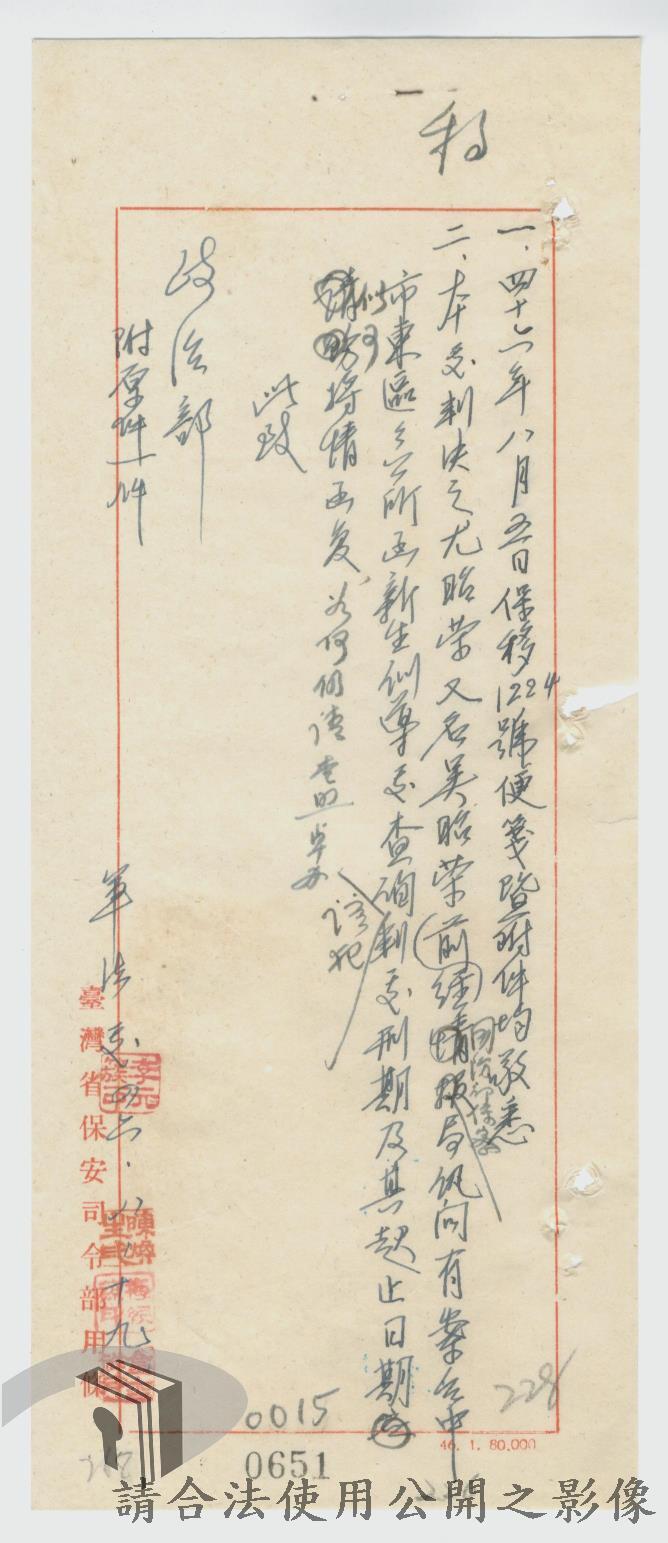 稿
一、四十六年八月五日保移1224號便箋暨附件均敬悉
二、本處判決之尤昭榮又名吳昭榮前經情報局訊問有案台中
國防部保密
市東區公所函新生訓導處查詢判處刑期及其起止日期
該犯
請將情函复為何仍請查照卓办
此致
政治部
附原件一件
軍法處四六、八、十九
臺灣省保安司令部用條
46. 1. 80.000
228
0015
0651
請合法使用公開之影像